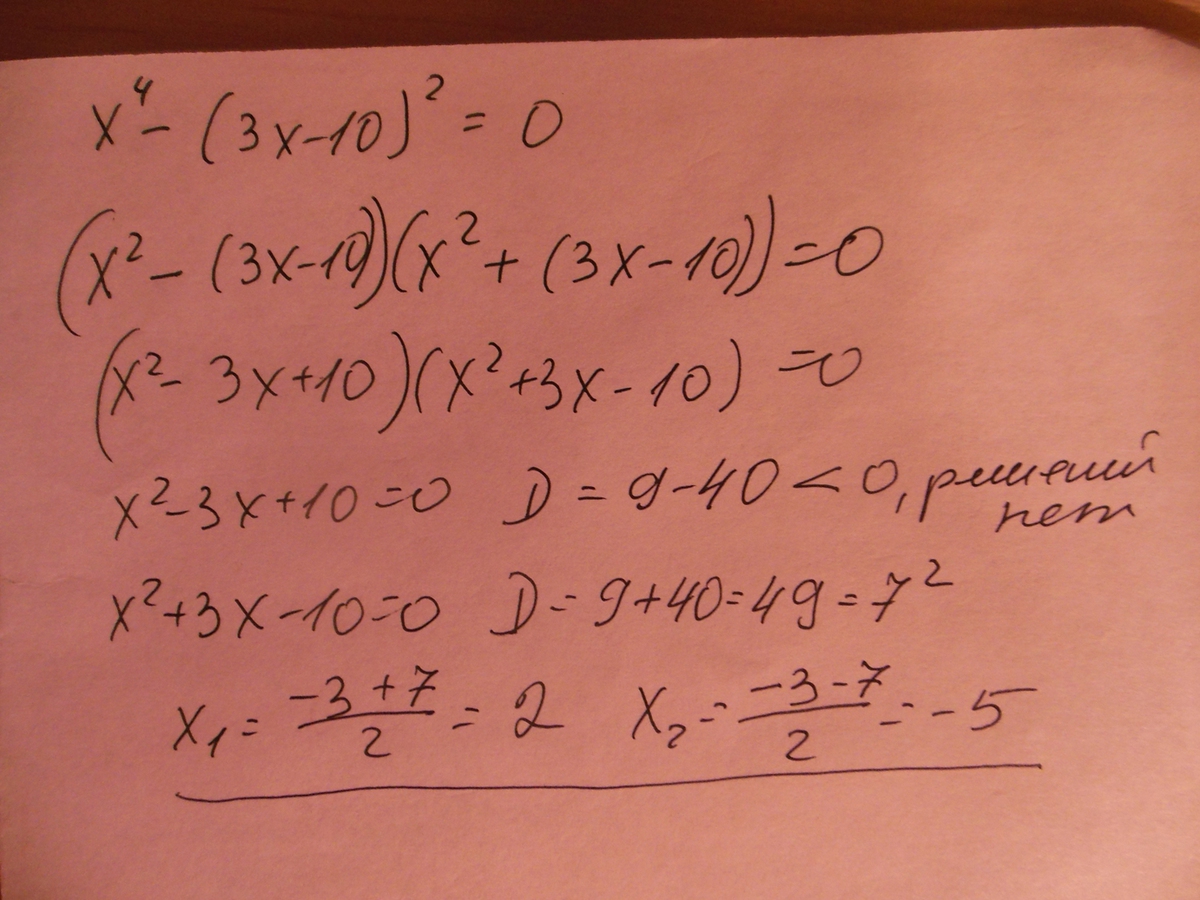 x⁴ - (3x-10)² = 0
(x² - (3x-10))(x² + (3x-10)) = 0
(x² - 3x+10)(x²+3x-10) = 0
x²-3x+10=0 D = 9-40 < 0, решений
нет
x²+3x-10=0 D = 9+40=49=7²
x₁ = (-3+7)/2 = 2 x₂ = (-3-7)/2 = -5